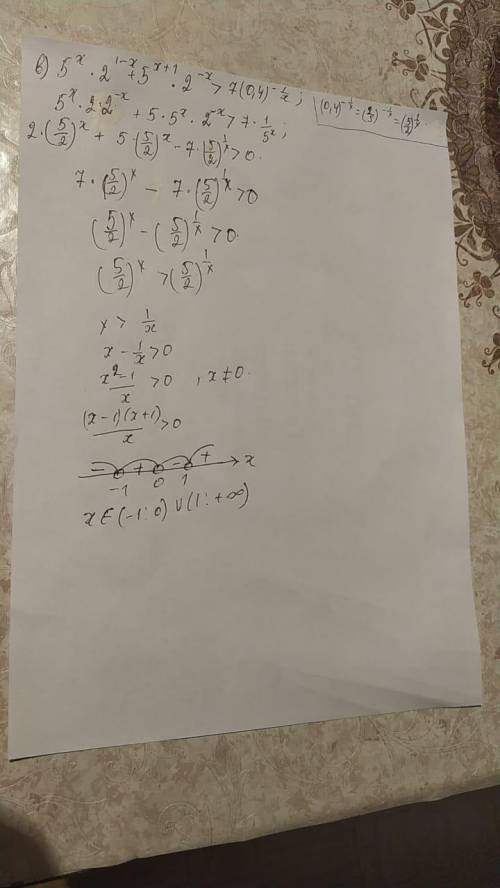 в) 5^x · 2^{1-x} + 5^{x+1} · 2^{-x} > 7(0,4)^{-1/x};
(0,4)^{-1/x} = (2/5)^{-1/x} = (5/2)^{1/x}.
5^x · 2 · 2^{-x} + 5 · 5^x · 2^{-x} > 7 · 1/5^x;
2 · (5/2)^x + 5 · (5/2)^x - 7 · (5/2)^{1/x} > 0.
7 · (5/2)^x - 7 · (5/2)^{1/x} > 0
(5/2)^x - (5/2)^{1/x} > 0.
(5/2)^x > (5/2)^{1/x}
x > 1/x
x - 1/x > 0
x^2-1/x > 0, x ≠ 0.
(x-1)(x+1)/x > 0
- + - + x
-1 0 1
x ∈ (-1; 0) ∪ (1; +∞)